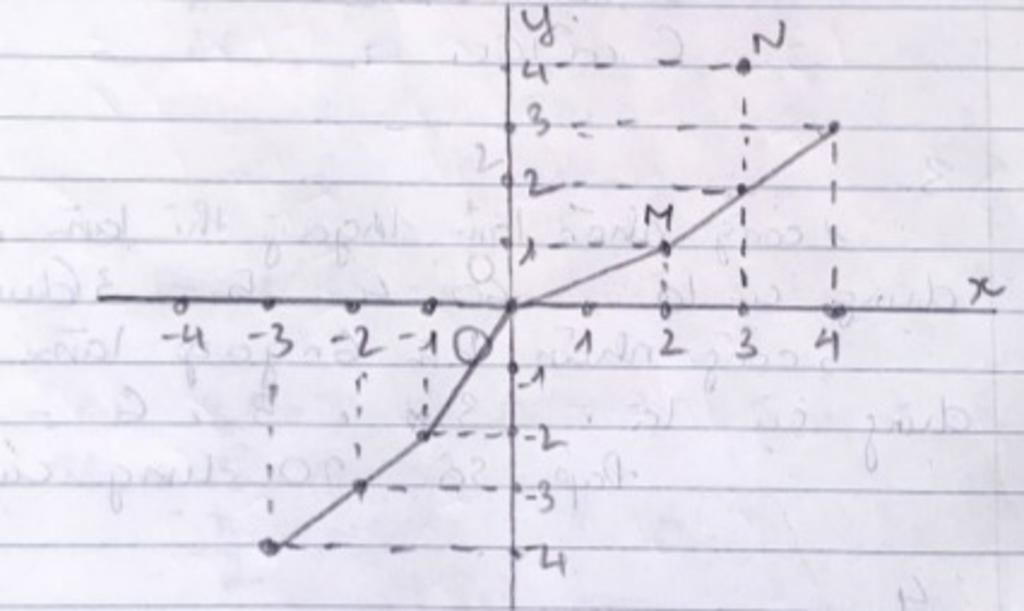 y
N
4
3
2
M
1
x
-4 -3 -2 -1 O 1 2 3 4
-1
-2
-3
-4